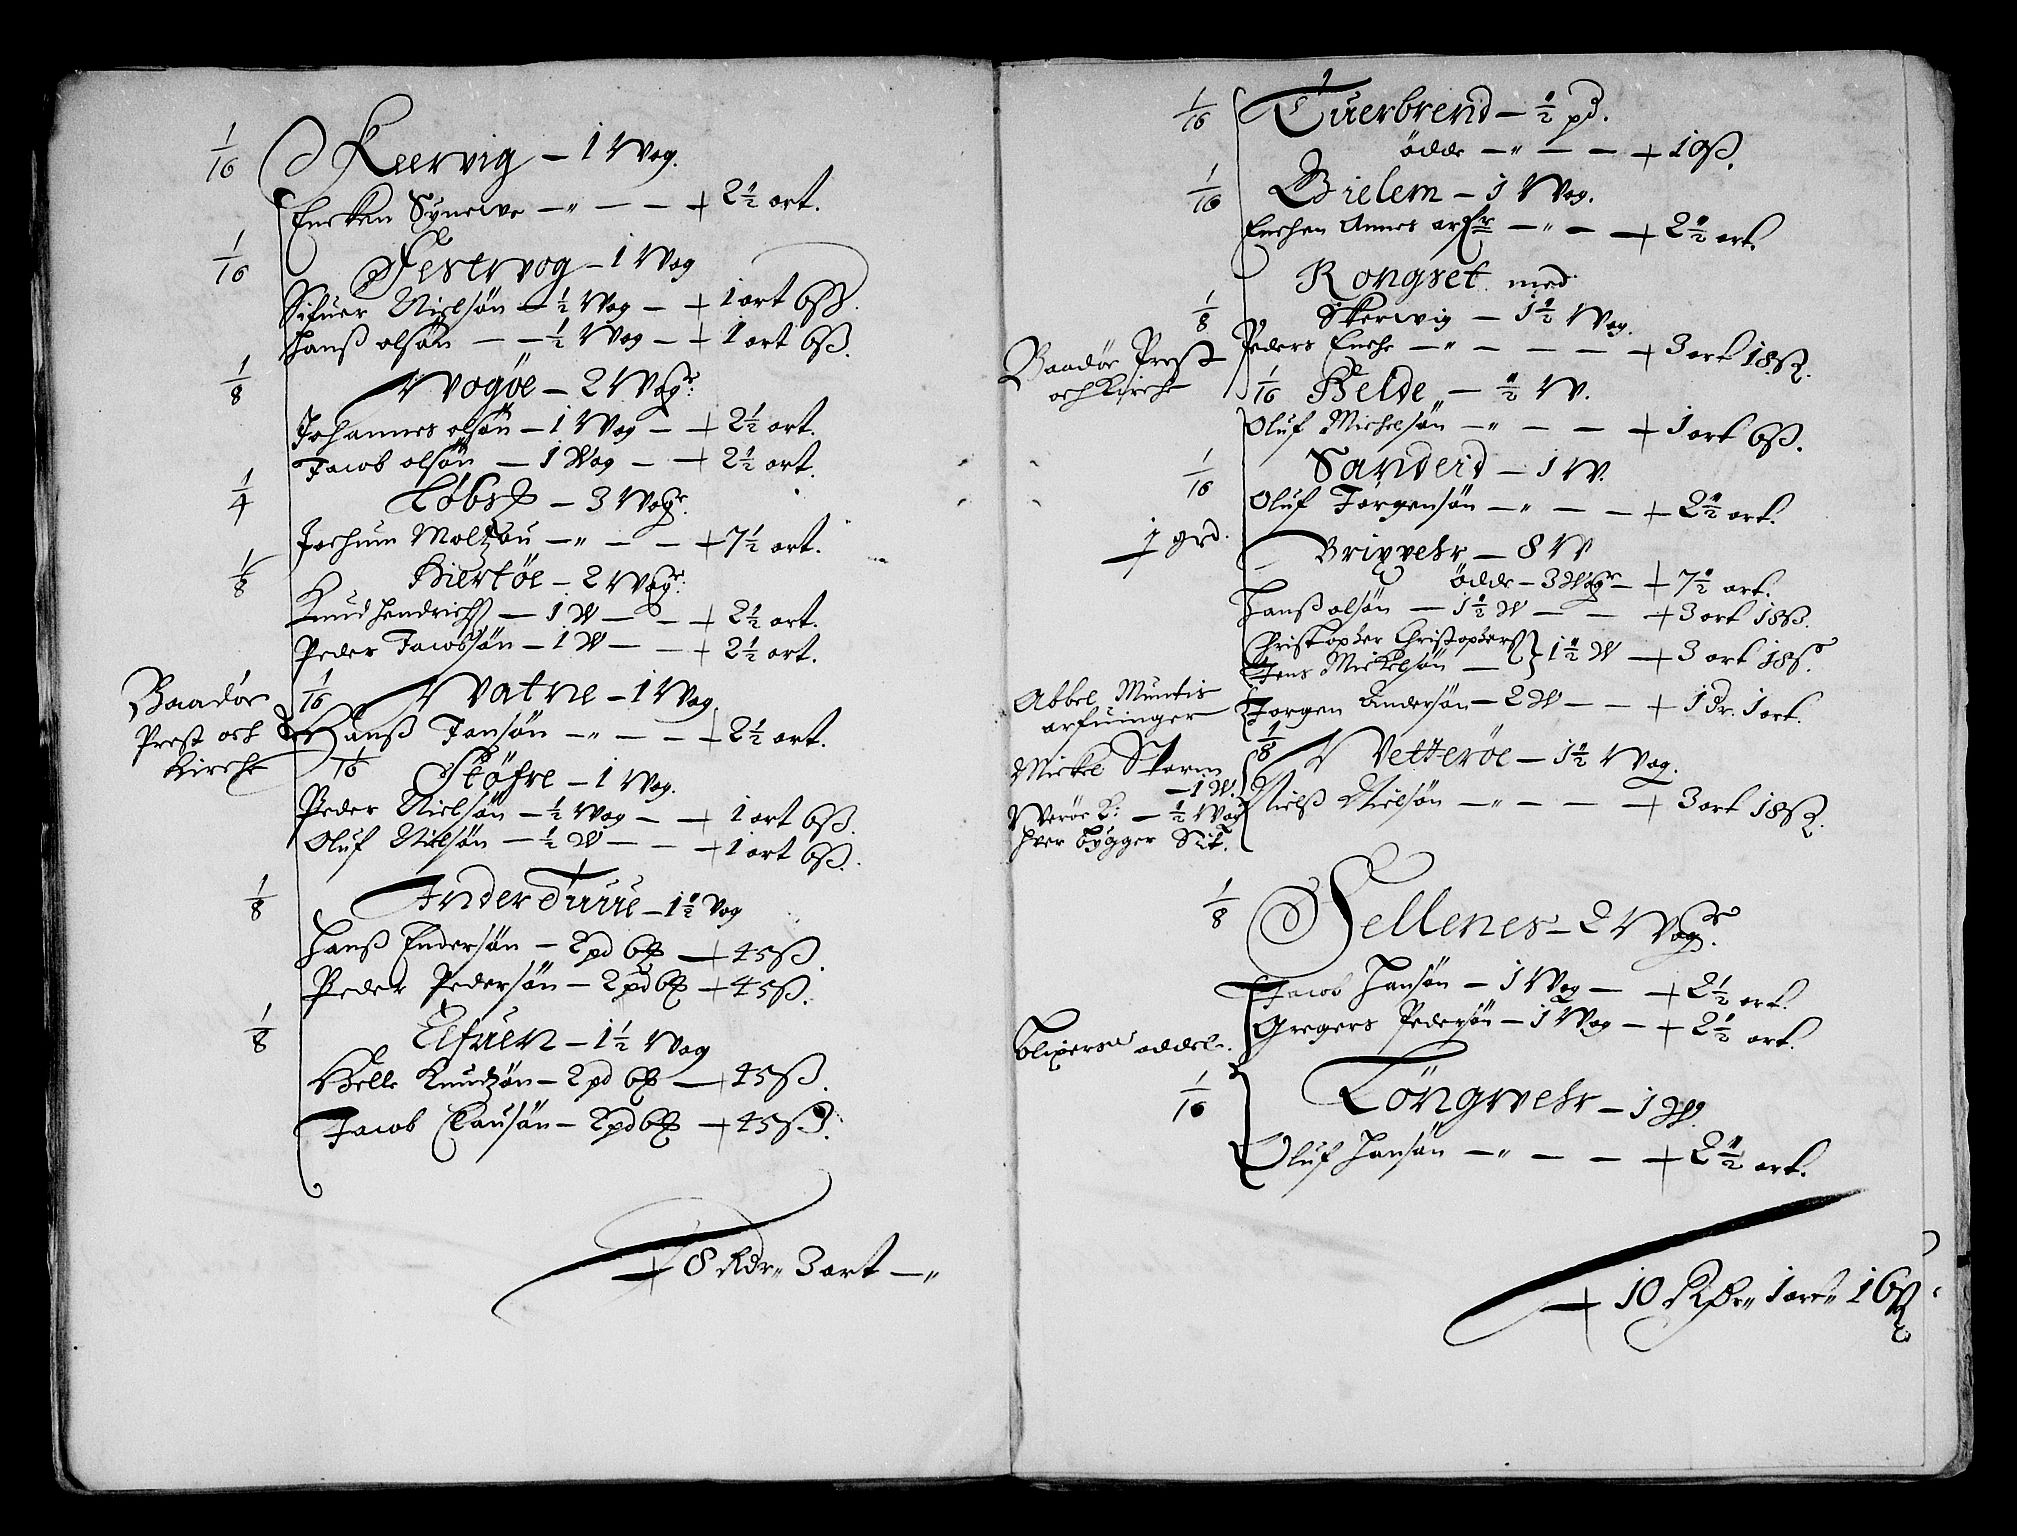 1/16 Kiervig – 1 Wog.
Encken Synewe – „ – – + 2½ ort.
1/16 Festvog – 1 Wog
Sifuer Nielsøn – ½ Wog – + 1 ort 6ß.
Hanß olsøn – – ½ Wog – + 1 ort 6ß.
1/8 Wogøe – 2 Wogr.
Johannes olsøn – 1 Wog – + 2½ ort.
Jacob olsøn – 1 Wog – + 2½ ort.
1/4 Løbsß – 3 Wogr.
Jochum Moltzau – „ – – + 7½ ort.
1/8 Biertøe – 2 Wogr.
Knud Hendrichß – 1 W – – + 2½ ort.
Peder Jacobsøn – 1 W – – + 2½ ort.
Baadøe
Prest och
Kirche
1/16 Watne – 1 Wog
Hanß Jonsøn – „ – – + 2½ ort.
1/16 Støfre – 1 Wog.
Peder Nielsøn – ½ Wog – + 1 ort 6ß.
Oluf Nielsøn – ½ W – – + 1 ort 6ß.
1/8 Inder Tuue – 1½ Vog
Hanß Endersøn – 2 pd 6ß – + 45ß.
Peder Pedersøn – 2 pd 6ß + 45ß.
1/8 Elfuen – 1½ Vog
Helle Knudzøn – 2 pd 6ß – + 45ß.
Jacob Clausøn – 2 pd 6ß + 45ß.
+ 8 Rdr „ 3 ort – „
1/16 Tuerbrend – ½ pd.
ødde – „ – – + 10ß.
1/16 Bielem – 1 Wog.
Enchen Annes arfr – „ – + 2½ ort.
Rongset med
1/8 Skerwig – 1½ Wog.
Baadøe Prest
och Kirche
Peders Enche – „ – – – + 3 ort 18ß.
1/16 Helde „ – ½ W.
Oluf Michelsøn – „ – – + 1 ort 6ß.
1/16 Sandeid – 1 W.
Oluf Jørgensøn – „ – – + 2½ ort.
1 grd.
Brixvehr – 8 W
ødde – 3 Wogr – + 7½ ort.
Hanß olsøn – 1½ W – – + 3 ort 18ß.
Christopher Christophersß
Jens Mickelsøn – } 1½ W – + 3 ort 18ß.
Abbel Muntis
arfuinger
Jørgen Andersøn – 2 W – – + 1 Dr. 1 ort.
1/8 Vetterøe – 1½ Wog.
Mickel Storm
– 1 W.
Werøe K: – ½ Wog
hver bygger Sit.
Nielß Nielsøn – „ – – – + 3 ort 18ß.
1/8 Sellenes – 2 Wogr.
Jacob Hansøn – 1 Wog – + 2½ ort.
Gregers Pedersøn – 1 Wog – + 2½ ort.
oddel.
1/16 Tøngwehr – 1 W.
Oluf Hansøn – „ – – + 2½ ort.
+ 10 Rdr „ 1 ort „ 16ß